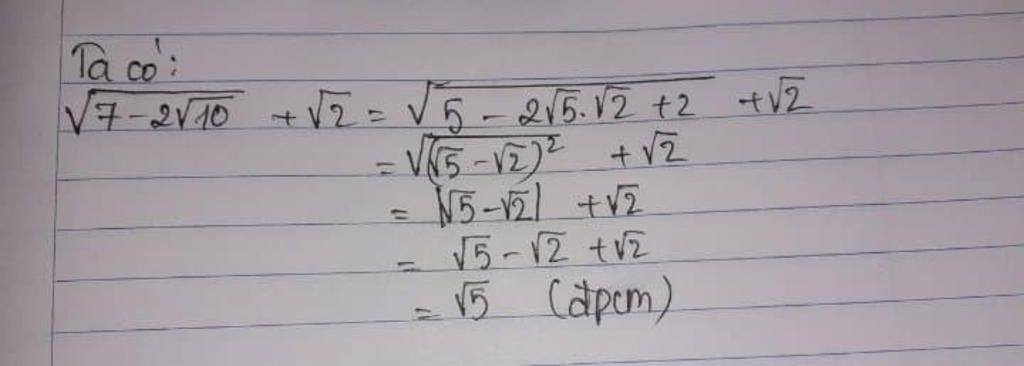 Ta có:
√(7-2√10) + √2 = √(5 - 2√5.√2 + 2) + √2
= √((√5 - √2)²) + √2
= |√5 - √2| + √2
= √5 - √2 + √2
= √5 (đpcm)